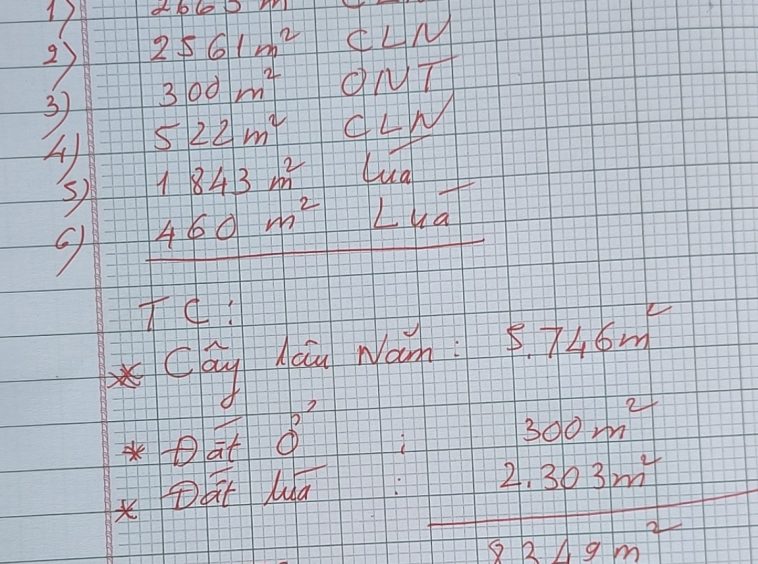 1) 2663 m
2) 2561m² CLN
3) 300 m² ONT
4) 522m² CLN
5) 1843 m² Lúa
6) 460 m² Lúa
TC:
* Cây lâu Năm : 5.746m²
* Đất ở : 300m²
* Đất lúa : 2.303m²
8349m²